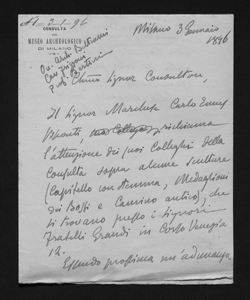 Al 3-1-96
CONSULTA
DEL
MUSEO ARCHEOLOGICO
DI MILANO
On. Arch. Beltrami
Cav.
Prof. Bertini
Milano 3 Gennaio
1896
Signor Consultore,
Il Signor Marchese Carlo Ermes
Visconti, richiama
l'attenzione dei suoi Colleghi della
Consulta sopra alcune sculture
(Capitello con Stemma, Medaglioni
dei Bossi e Camino antico), che
si trovano presso i Signori
Fratelli Grandi in Corso Venezia
12.
Essendo prossima un'adunanza